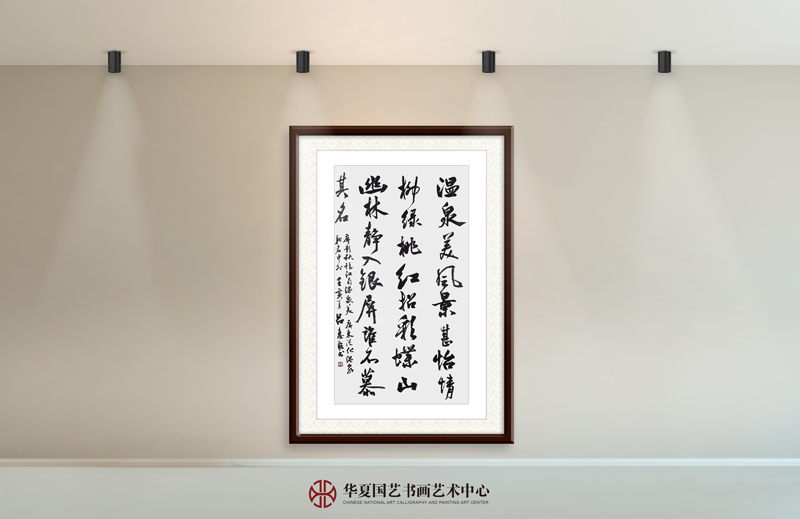 温泉美风景甚怡情
柳绿桃红招彩蝶山
幽林静入银屏谁不慕
其名
华夏国艺书画艺术中心
CHINESE NATIONAL ART CALLIGRAPHY AND PAINTING ART CENTER